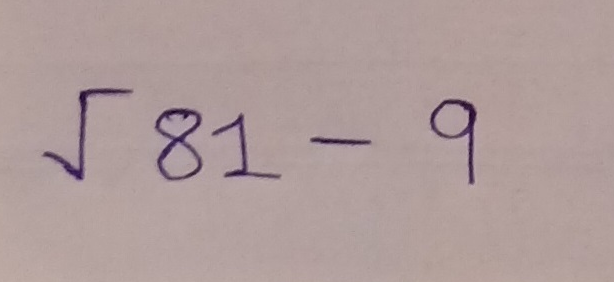 √81 - 9